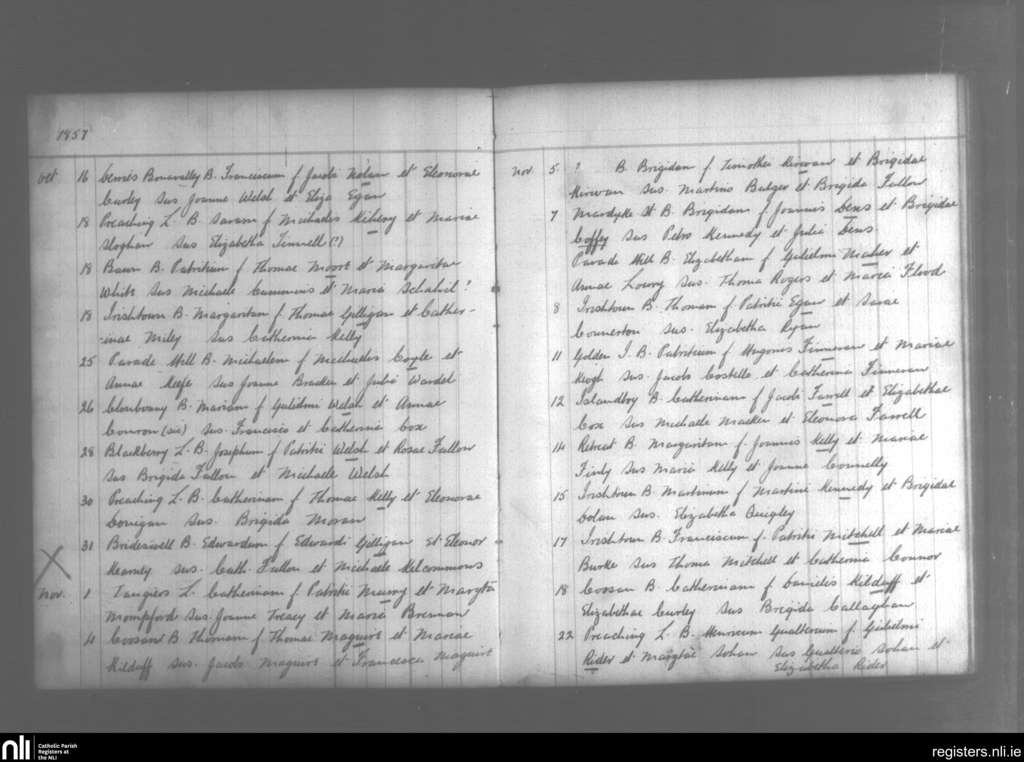 1857
Oct 16 Bonavalley B. Franciscum f Jacobi Nolan et Eleonorae
Curley Sus Joanne Welsh et Eliza Egan
18 Preaching L. B. Saram f Michaelis Kilroy et Mariae
Sloghan Sus Elizabetha Tinnell (?)
18 Bawn B. Patritium f Thomae Moore et Margaritae
White Sus Michaele Cummins et Maria Schahil?
18 Irishtown B. Margaritam f Thomae Gilligan et Cather-
-inae Miley Sus Catherina Kelly
25 Parade Hill B. Michaelem f Michaelis Coyle et
Annae Keefe Sus Joanne Bracken et Julia Wardel
26 Clonbrony B. Mariam f Gulielmi Welsh et Annae
Conron (sic) Sus. Francisco et Catherina Cox
28 Blackberry L. B. Josephum f Patritii Welsh et Rosae Fallon
Sus Brigida Fallon et Michaele Welsh
30 Preaching L. B. Catherinam f Thomae Kelly et Eleonorae
Corrigan Sus. Brigida Moran
31 Brideswell B. Edwardum f Edwardi Gilligan et Eleonor
Kearney Sus. Cath. Fallon et Michaele Kelcommons
Nov. 1 Tangiers L. Catherinam f Patritii Murry et Margtæ
Mompford Sus. Joanne Treacy et Maria Brennan
4 Cossan B Thomam f Thomae Maguire et Mariae
Kilduff Sus. Jacobo Maguire et Francesca Maguire
Nov 5 ? B Brigidam f Timothei Kirwan et Brigidae
Kirwan Sus. Martino Bulger et Brigida Fallon
7 Mardyke St B. Brigidam f Joannis Cens et Brigidae
Coffy Sus Petro Kennedy et Julia Cens
Parade Hill B. Elizabetham f Gulielmi Maher et
Annae Lowry Sus. Thoma Rogers et Maria Flood
8 Irishtown B. Thomam f Patritii Egan et Sarae
Connerton Sus. Elizabetha Ryan
11 Golden I. B. Patritium f Hugonis Finneran et Mariae
Keogh Sus. Jacobo Costello et Catherina Finneran
12 Islandboy B. Catherinam f Jacobi Farrell et Elizabethae
Cox Sus Michaele Macken et Eleonora Farrell
14 Retreat B. Margaritam f. Joannis Kelly et Mariae
Finly Sus Maria Kelly et Joanne Connelly
15 Irishtown B. Martinum f Martini Kennedy et Brigidae
Dolan Sus. Elizabetha Quigley
17 Irishtown B. Franciscum f Patritii Mitchell et Mariae
Burke Sus Thoma Mitchell et Catherina Connor
18 Cossan B. Catherinam f Danielis Kilduff et
Elizabethae Curley Sus Brigida Callaghan
22 Preaching L. B. Henricum Gualterium f. Gulielmi
Rider et Margtæ Sohan Sus Gualterio Sohan et
Elizabetha Rider
nli Catholic Parish
Registers at
the NLI
registers.nli.ie